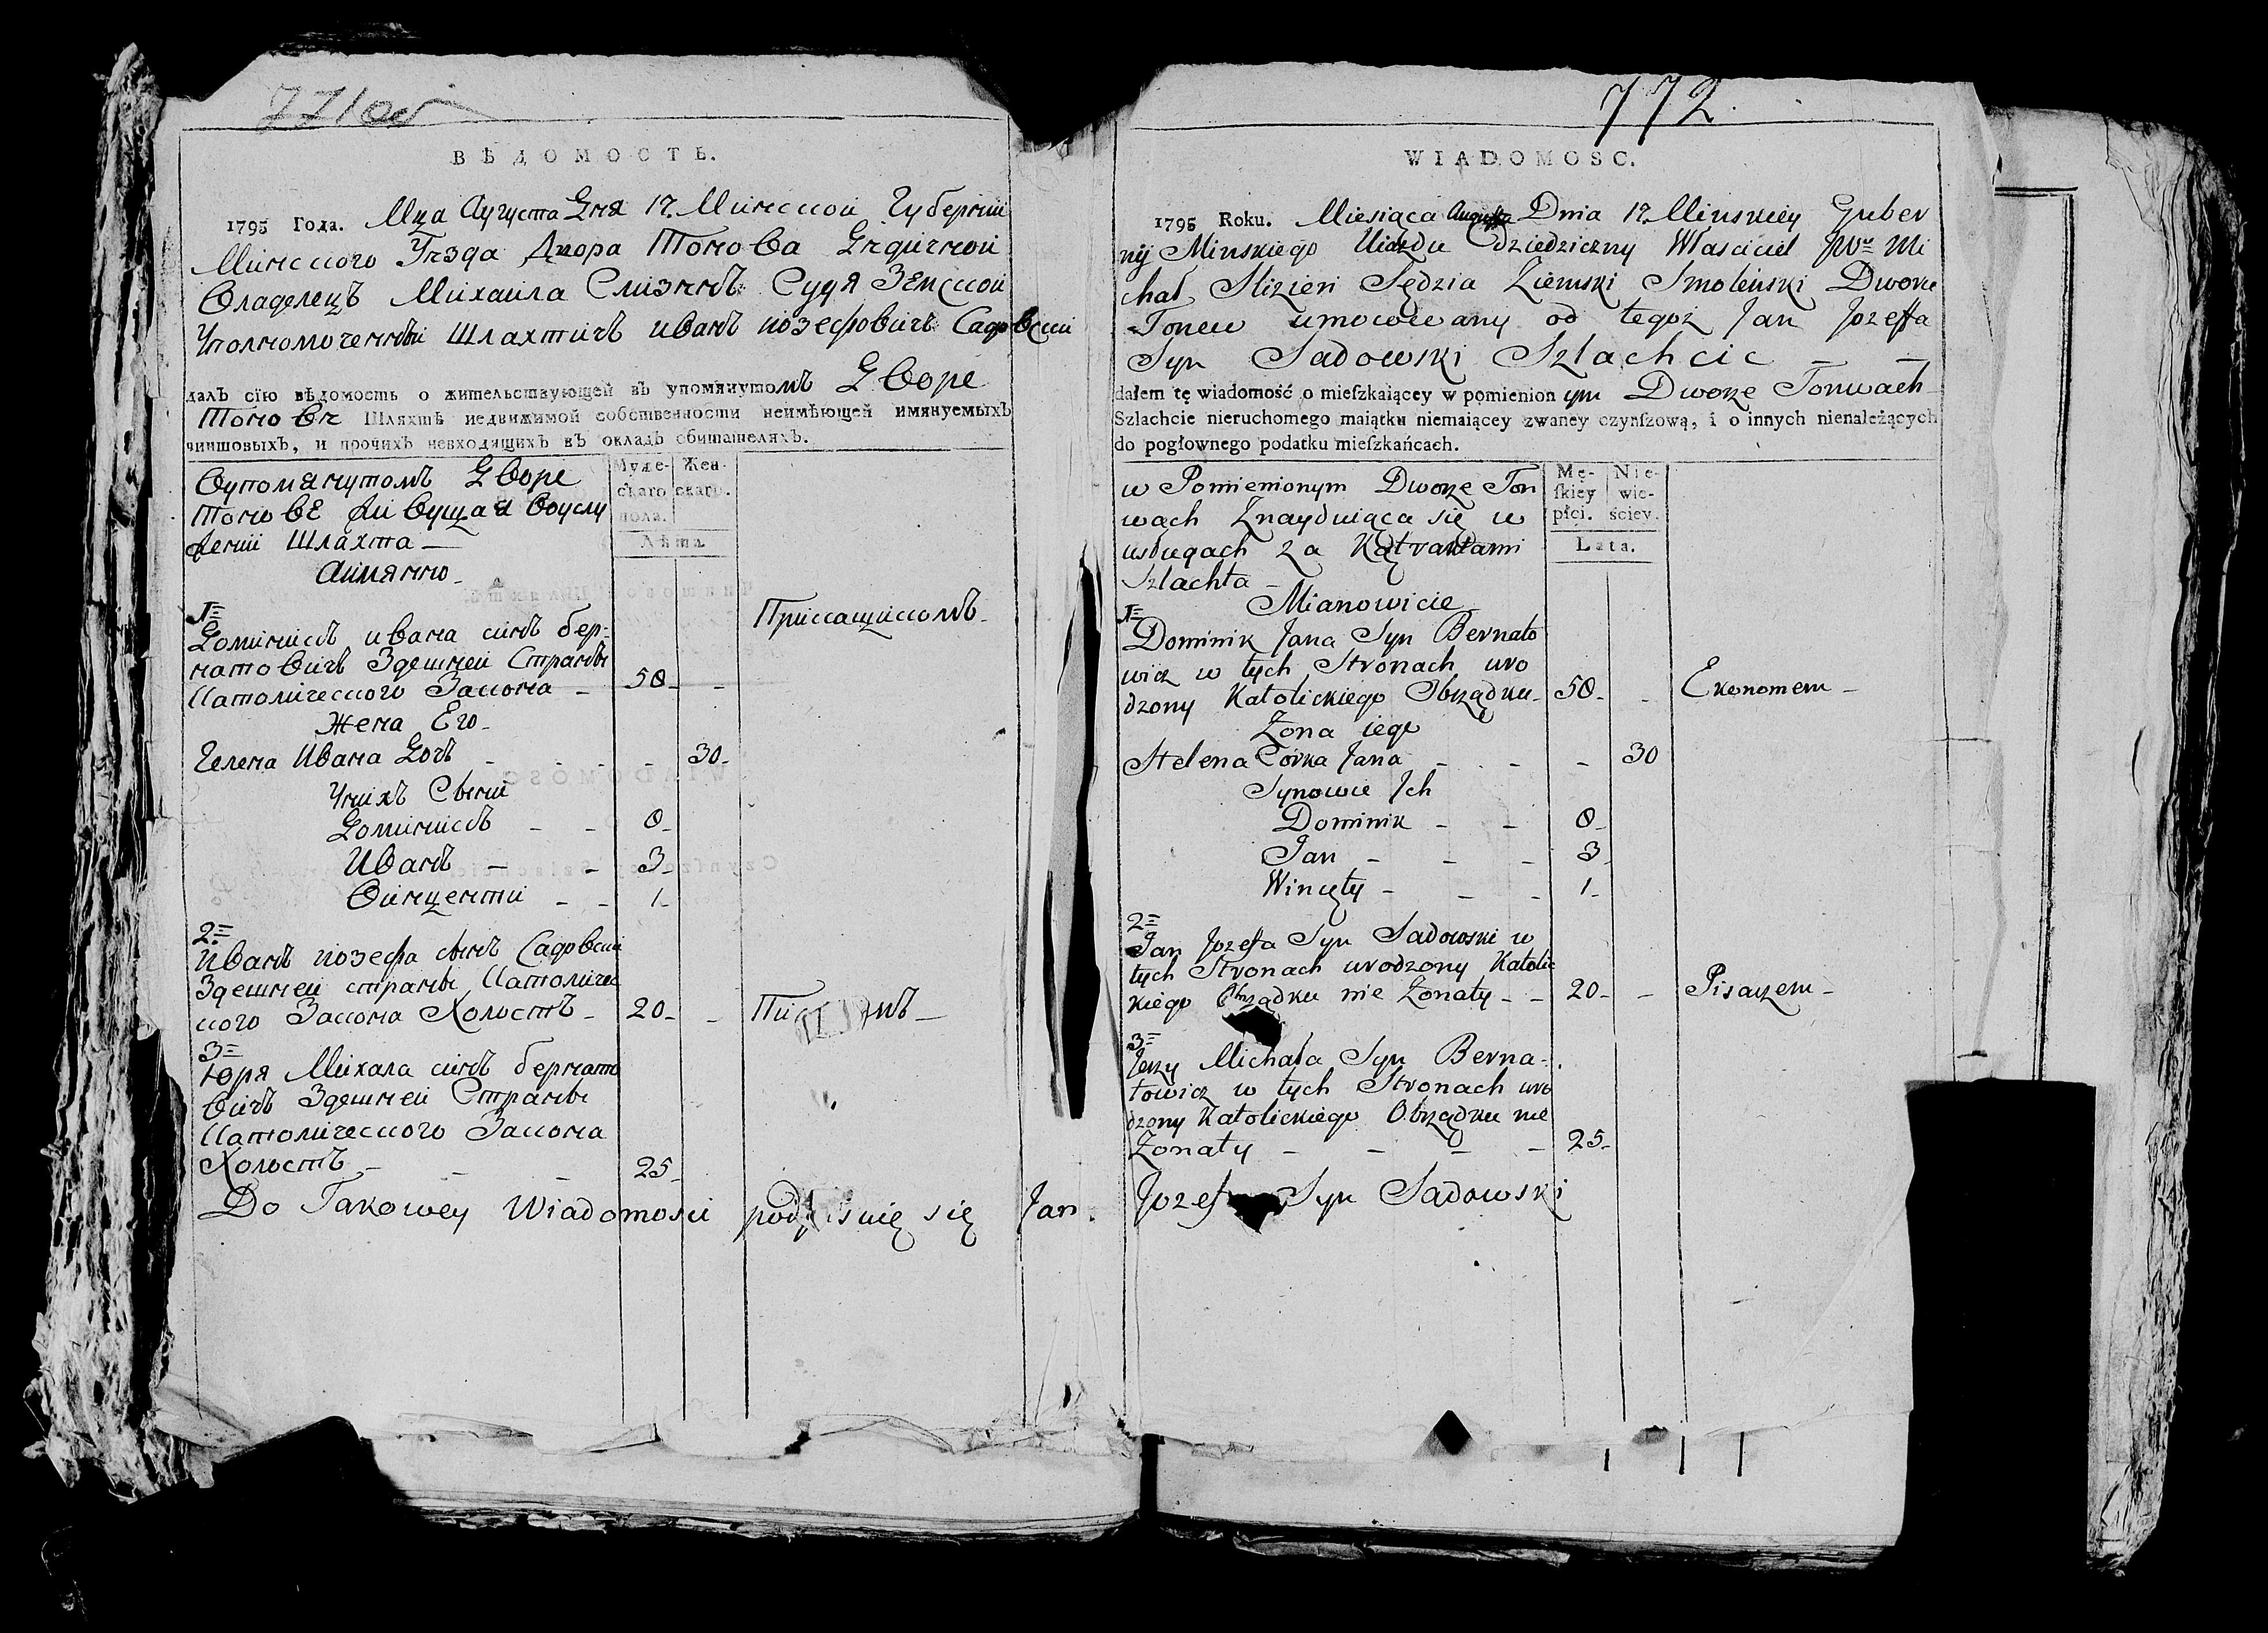 771об
ВѢДОМОСТЬ.
1795 Года. Мца Августа Дня 17. Минской Губернии
Минского Уезда Двора Тонова Едичной
Владелецъ Михаила Слизннъ Судя Земской
Уполномоченный Шлахтичъ иванъ иозефовичъ Садовский
далъ сїю вѣдомость о жительствующей въ упомянутомъ Дворе
Тонове Шляхтѣ недвижимой собственности неимѣющей имянуемыхъ
чиншовыхъ, и прочихъ невходящихъ въ окладъ обитателяхъ.
Мужескаго пола. Женскаго.
Лѣта.
Вупомянутомъ Дворе
Тонове Живущая Воуслу
жении Шлахта —
Аимянно —
1=
Доминикъ ивана синъ бер=
натовичъ Здешней Страны
Католического Закона — 50 — — Прикащикомъ —
Жена Его —
Гелена Ивана Дочъ — — — 30 —
Унихъ Сыни
Доминикъ — — 8 —
Иванъ — — 3 —
Винценти — — 1 —
2=
Иванъ иозефа сынъ Садовски
Здешней страны Католиче
ского Закона Холостъ — 20 — —
3=
Юря Михала синъ бернато
вичъ Здешней Страны
Католического Закона
Холостъ — — — 25 —
772.
WIADOMOSC.
1795 Roku. Miesiąca Augusta Dnia 17. Minskiey Guber
nij Minskiego Uiazdu dziedziczny Własciciel JWu Mi
chał Slizień Sędzia Ziemski Smoleński Dworu
Tonew umocowany od tegoż Jan Jozeffa
Syn Sadowski Szlachcic — —
dałem tę wiadomość o mieſzkaiącey w pomienionym Dworze Tonwach
Szlachcie nieruchomego maiątku niemaiącey zwaney czynſzową, i o innych nienależących
do pogłownego podatku mieſzkańcach.
Męſkiey płci. Niewieściey.
Lata.
w Pomienionym Dworze Ton
wach Znayduiąca się w
usługach za Kątraktami
Szlachta —
Mianowicie
1=
Dominik Jana Syn Bernato
wicz w tych Stronach uro
dzony Katolickiego Obrządku — 50 — — Ekonomem —
Zona iego
Helena Córka Jana — — — 30
Synowie Ich
Dominik — — 8 —
Jan — — — 3 —
Wincęty — — — 1 —
2=
Jan Jozefa Syn Sadowski w
tych Stronach urodzony Katolic
kiego Obrządku nie Zonaty — — 20 — — Pisarzem —
3=
Jerzy Michała Syn Berna-
towicz w tych Stronach uro
dzony Katolickiego Obrządku nie
Zonaty — — — — 25 —
Do Takowey Wiadomosci podpisuię się Jan Jozefa Syn Sadowski